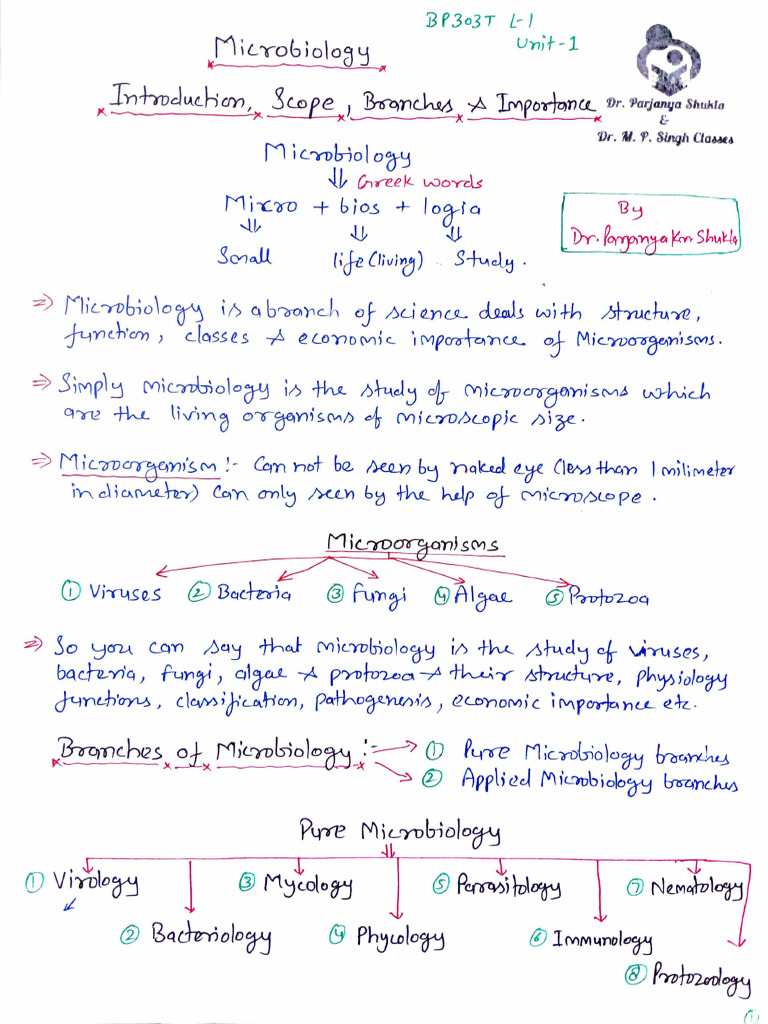 BP303T L-1
Unit-1
Microbiology
Introduction, Scope, Branches & Importance
Dr. Parjanya Shukla
&
Dr. M. P. Singh Classes
Microbiology
Greek words
Mixro + bios + logia
Small life (living) Study.
By
Dr. Parjanya Kr Shukla
⇒ Microbiology is a branch of science deals with structure,
function, classes & economic importance of Microorganisms.
⇒ Simply microbiology is the study of microorganisms which
are the living organisms of microscopic size.
⇒ Microorganism :- Can not be seen by naked eye (less than 1 milimeter
in diameter) Can only seen by the help of microscope.
Microorganisms
① Viruses ② Bacteria ③ Fungi ④ Algae ⑤ Protozoa
⇒ So you can say that microbiology is the study of viruses,
bacteria, fungi, algae & protozoa & their structure, physiology
functions, classification, pathogenesis, economic importance etc.
Branches of Microbiology :- ① Pure Microbiology branches
② Applied Microbiology branches
Pure Microbiology
① Virology ③ Mycology ⑤ Parasitology ⑦ Nematology
② Bacteriology ④ Phycology ⑥ Immunology
⑧ Protozoology
①